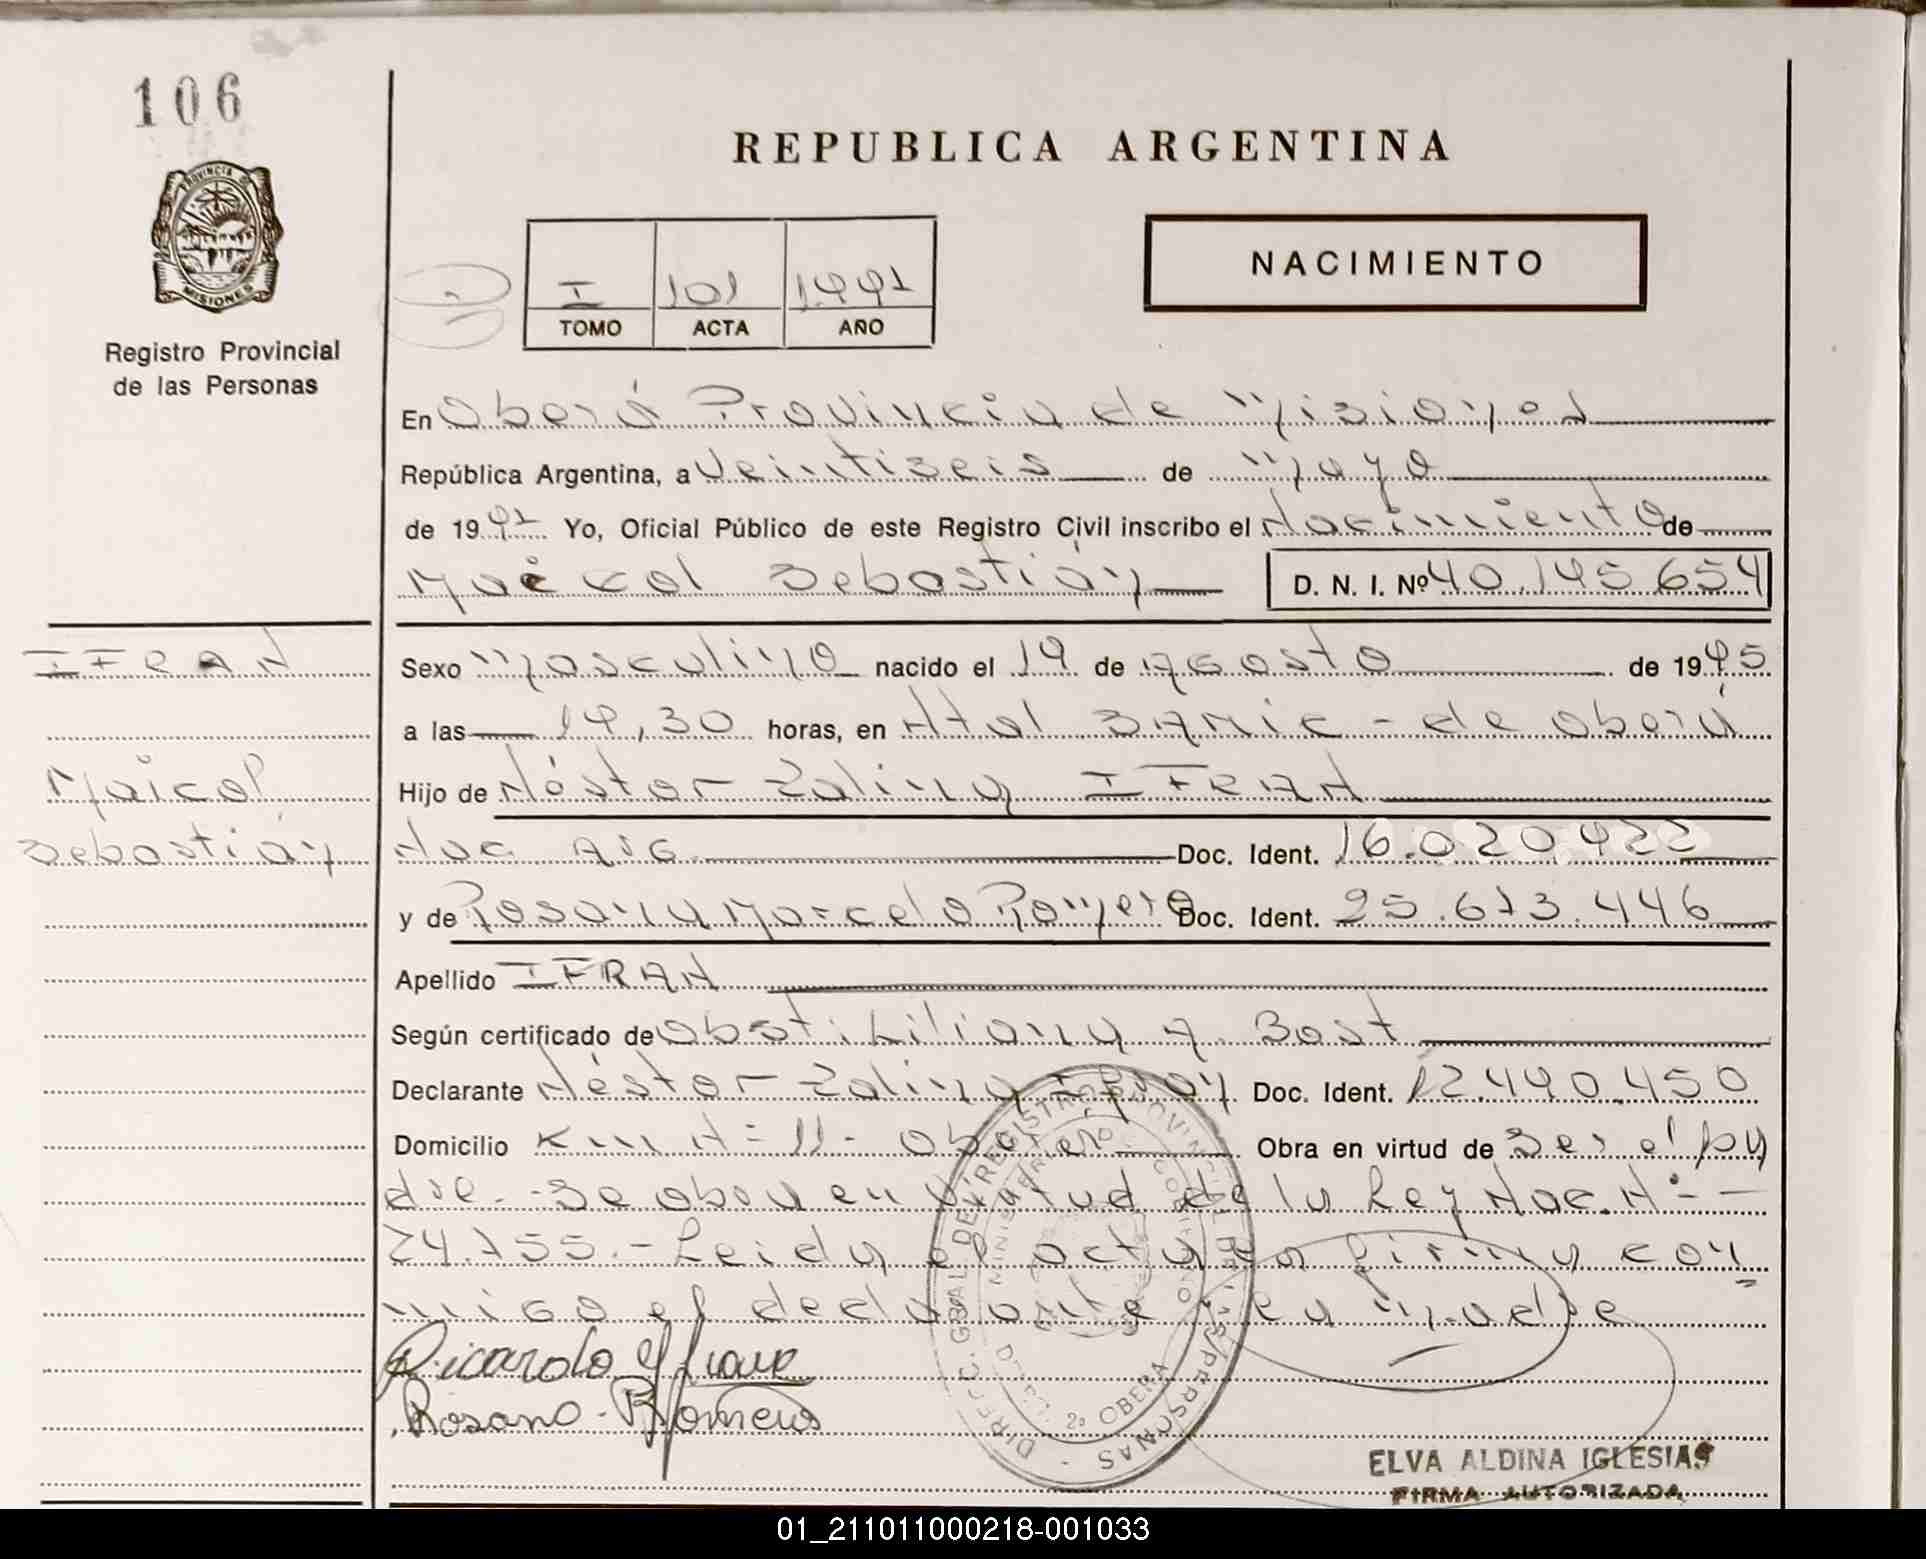 106
REPUBLICA ARGENTINA
PROVINCIA DE
MISIONES
Registro Provincial
de las Personas
NACIMIENTO
I 101
TOMO ACTA AÑO
En Oberá Provincia de Misiones
República Argentina, a veintiseis de Mayo
de 19 Yo, Oficial Público de este Registro Civil inscribo el Nacimiento de
Maicol Sebastián D. N. I. Nº 40.145.654
IFRAN
Sexo Masculino nacido el 19 de Agosto de 1995
a las 14,30 horas, en Htal SAMIC - de Oberá
Maicol
Hijo de Néstor IFRAN
Sebastián
Nac Arg. Doc. Ident. 16.020.422
y de Rosana Marcela Romero Doc. Ident. 25.673.446
Apellido IFRAN
Según certificado de Obst. Liliana A. Bost
Declarante Néstor Ifran Doc. Ident. 12.440.450
Domicilio Km Nº 11 - Oberá Obra en virtud de ser el pa
dre. - Se obra en virtud de la Ley Nac. Nº -
24.755. - Leida el acta la firma con
migo el declarante y la madre
Ricardo
Rosana Romero
DIREC. GRAL. DEL REGISTRO PROVINCIAL DE LAS PERSONAS
MINISTERIO GOBIERNO
2ª OBERA
ELVA ALDINA IGLESIAS
FIRMA AUTORIZADA
01_211011000218-001033